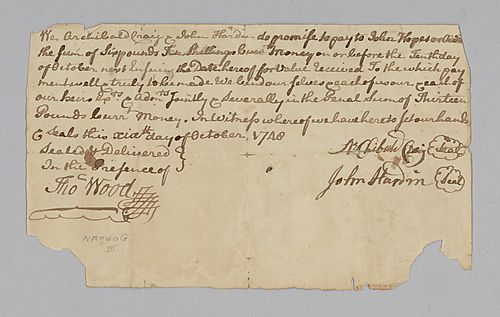 We Archibald Craig & John Hardin do promise to pay to John Hopes or Order
the sum of Six pounds Ten Shillings Curr Money on or before the Tenth day
of October next Ensuing the Date hereof for Value Received To the which pay
ment well & truly to be made We bind our selves each of us our & each of
our heirs Exrs & admrs Jointly & Severally in the Penal Sum of Thirteen
Pounds Curr Money. In Witness whereof we have hereto set our hands
& Seals this day of October 1748
Sealed & Delivered
In the Presence of
Archibald Craig Seal
John Hardin Seal
Thos Wood